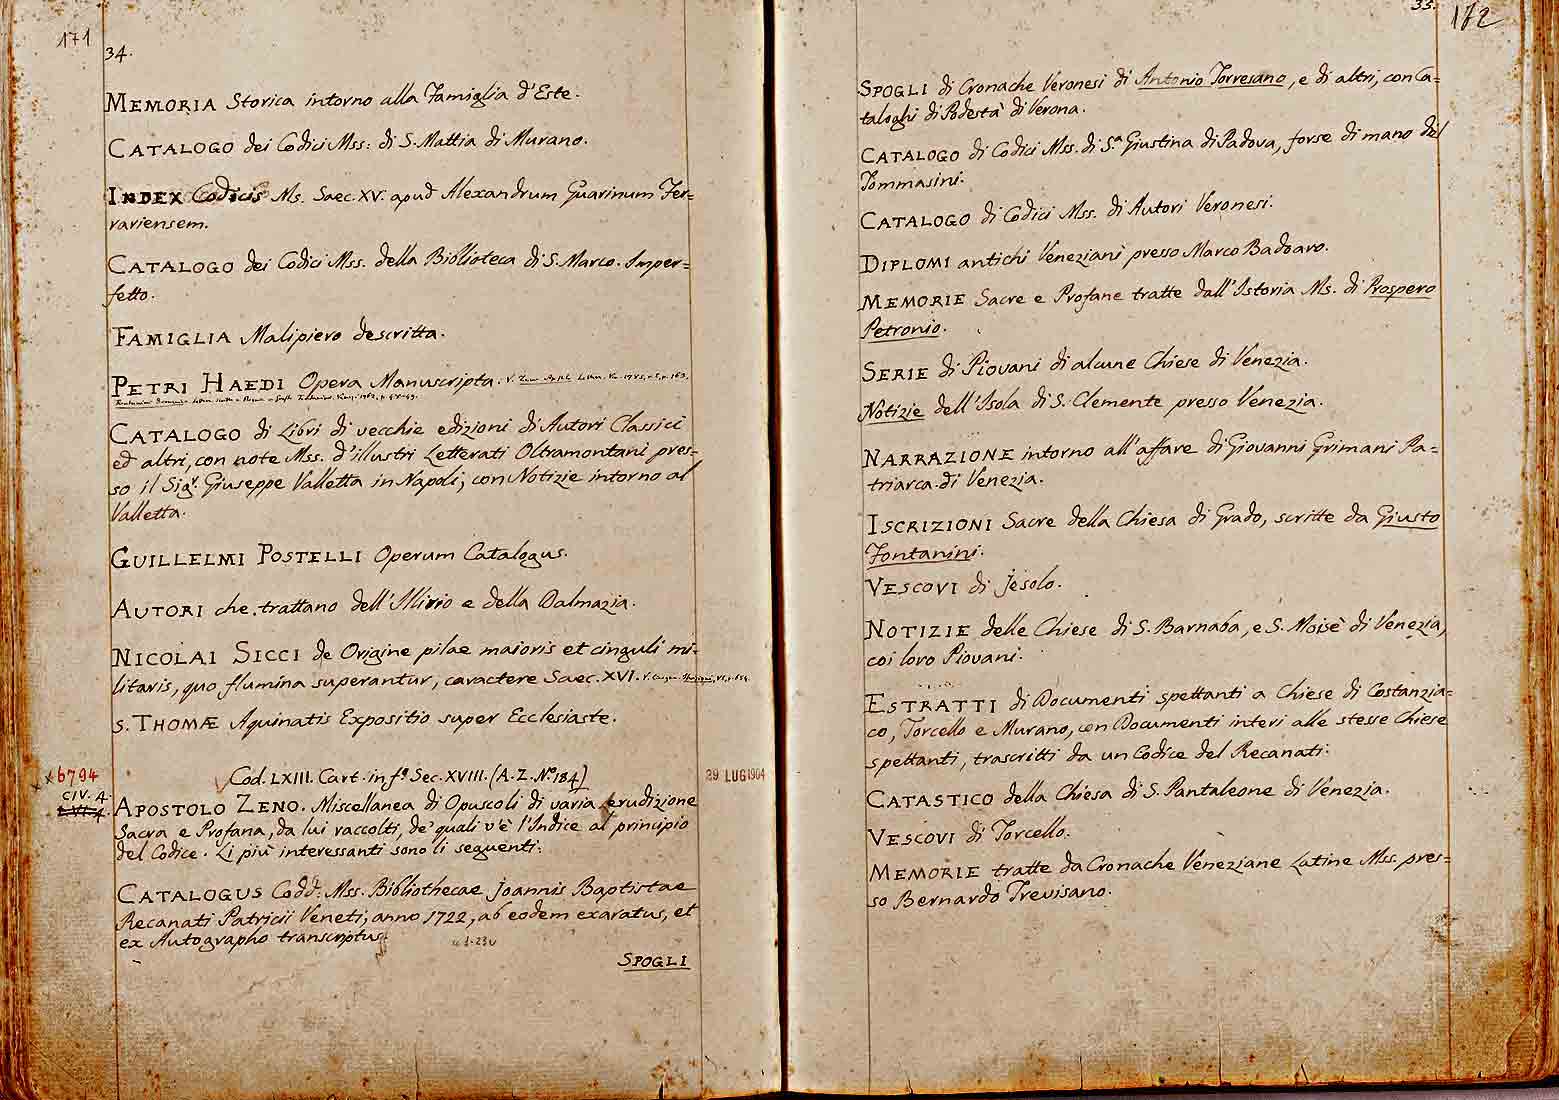 171
34.
MEMORIA Storica intorno alla Famiglia d'Este.
CATALOGO dei Codici Mss: di S. Mattia di Murano.
INDEX Codicis Ms. Saec. XV. apud Alexandrum Guarinum Fer=
rariensem.
CATALOGO dei Codici Mss. della Biblioteca di S. Marco. Imper=
fetto.
FAMIGLIA Malipiero descritta.
PETRI HAEDI Opera Manuscripta.
CATALOGO di Libri di vecchie edizioni di Autori Classici
ed altri, con note Mss. d'illustri Letterati Oltramontani pres=
so il Sigr. Giuseppe Valletta in Napoli; con Notizie intorno al
Valletta.
GUILLELMI POSTELLI Operum Catalogus.
AUTORI che trattano dell'Illirio e della Dalmazia.
NICOLAI SICCI de Origine pilae maioris et cinguli mi=
litaris, quo flumina superantur, caractere Saec. XVI.
S. THOMÆ Aquinatis Expositio super Ecclesiaste.
6794
Cod. LXIII. Cart. in fo. Sec. XVIII. (A. Z. No. 184)
29 LUG 1904
CIV. 4.
APOSTOLO ZENO. Miscellanea di Opuscoli di varia erudizione
Sacra e Profana, da lui raccolti, de' quali v'è l'Indice al principio
del Codice. Li più interessanti sono li seguenti:
CATALOGUS Codd: Mss. Bibliothecae Joannis Baptistae
Recanati Patricii Veneti, anno 1722, ab eodem exaratus, et
ex Autographo transcriptus.
SPOGLI
35.
172
SPOGLI di Cronache Veronesi di Antonio Torresano, e di altri, con Ca=
taloghi di Podestà di Verona.
CATALOGO di Codici Mss. di Sa. Giustina di Padova, forse di mano del
Tommasini.
CATALOGO di Codici Mss. di Autori Veronesi.
DIPLOMI antichi Veneziani presso Marco Badoaro.
MEMORIE Sacre e Profane tratte dall'Istoria Ms. di Prospero
Petronio.
SERIE di Piovani di alcune Chiese di Venezia.
Notizie dell'Isola di S. Clemente presso Venezia.
NARRAZIONE intorno all'affare di Giovanni Grimani Pa=
triarca di Venezia.
ISCRIZIONI Sacre della Chiesa di Grado, scritte da Giusto
Fontanini.
VESCOVI di Jesolo.
NOTIZIE delle Chiese di S. Barnaba, e S. Moisè di Venezia,
coi loro Piovani.
ESTRATTI di Documenti spettanti a Chiese di Costanzia=
co, Torcello e Murano, con Documenti interi alle stesse Chiese
spettanti, trascritti da un Codice del Recanati.
CATASTICO della Chiesa di S. Pantaleone di Venezia.
VESCOVI di Torcello.
MEMORIE tratte da Cronache Veneziane Latine Mss. pres=
so Bernardo Trevisano.